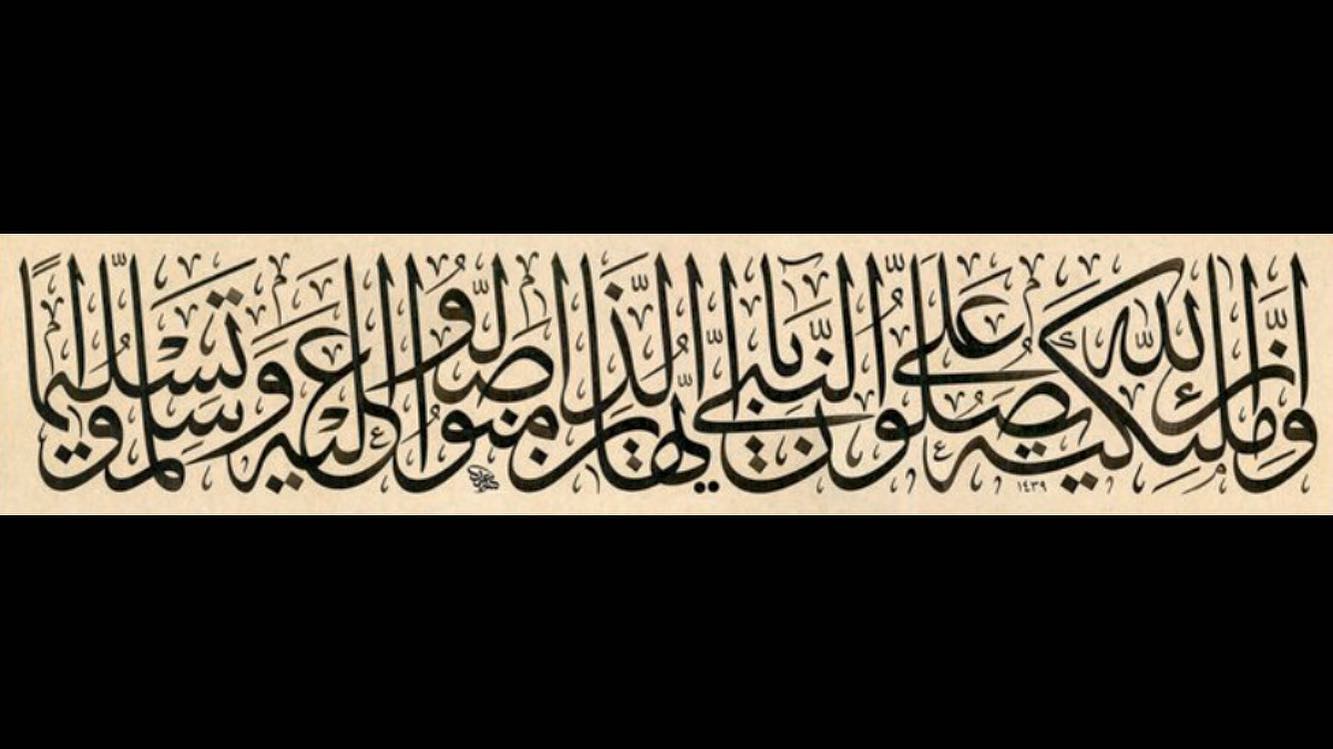 إن الله وملئكته يصلون على النبي يأيها الذين ءامنوا صلوا عليه وسلموا تسليما
١٤٣٩